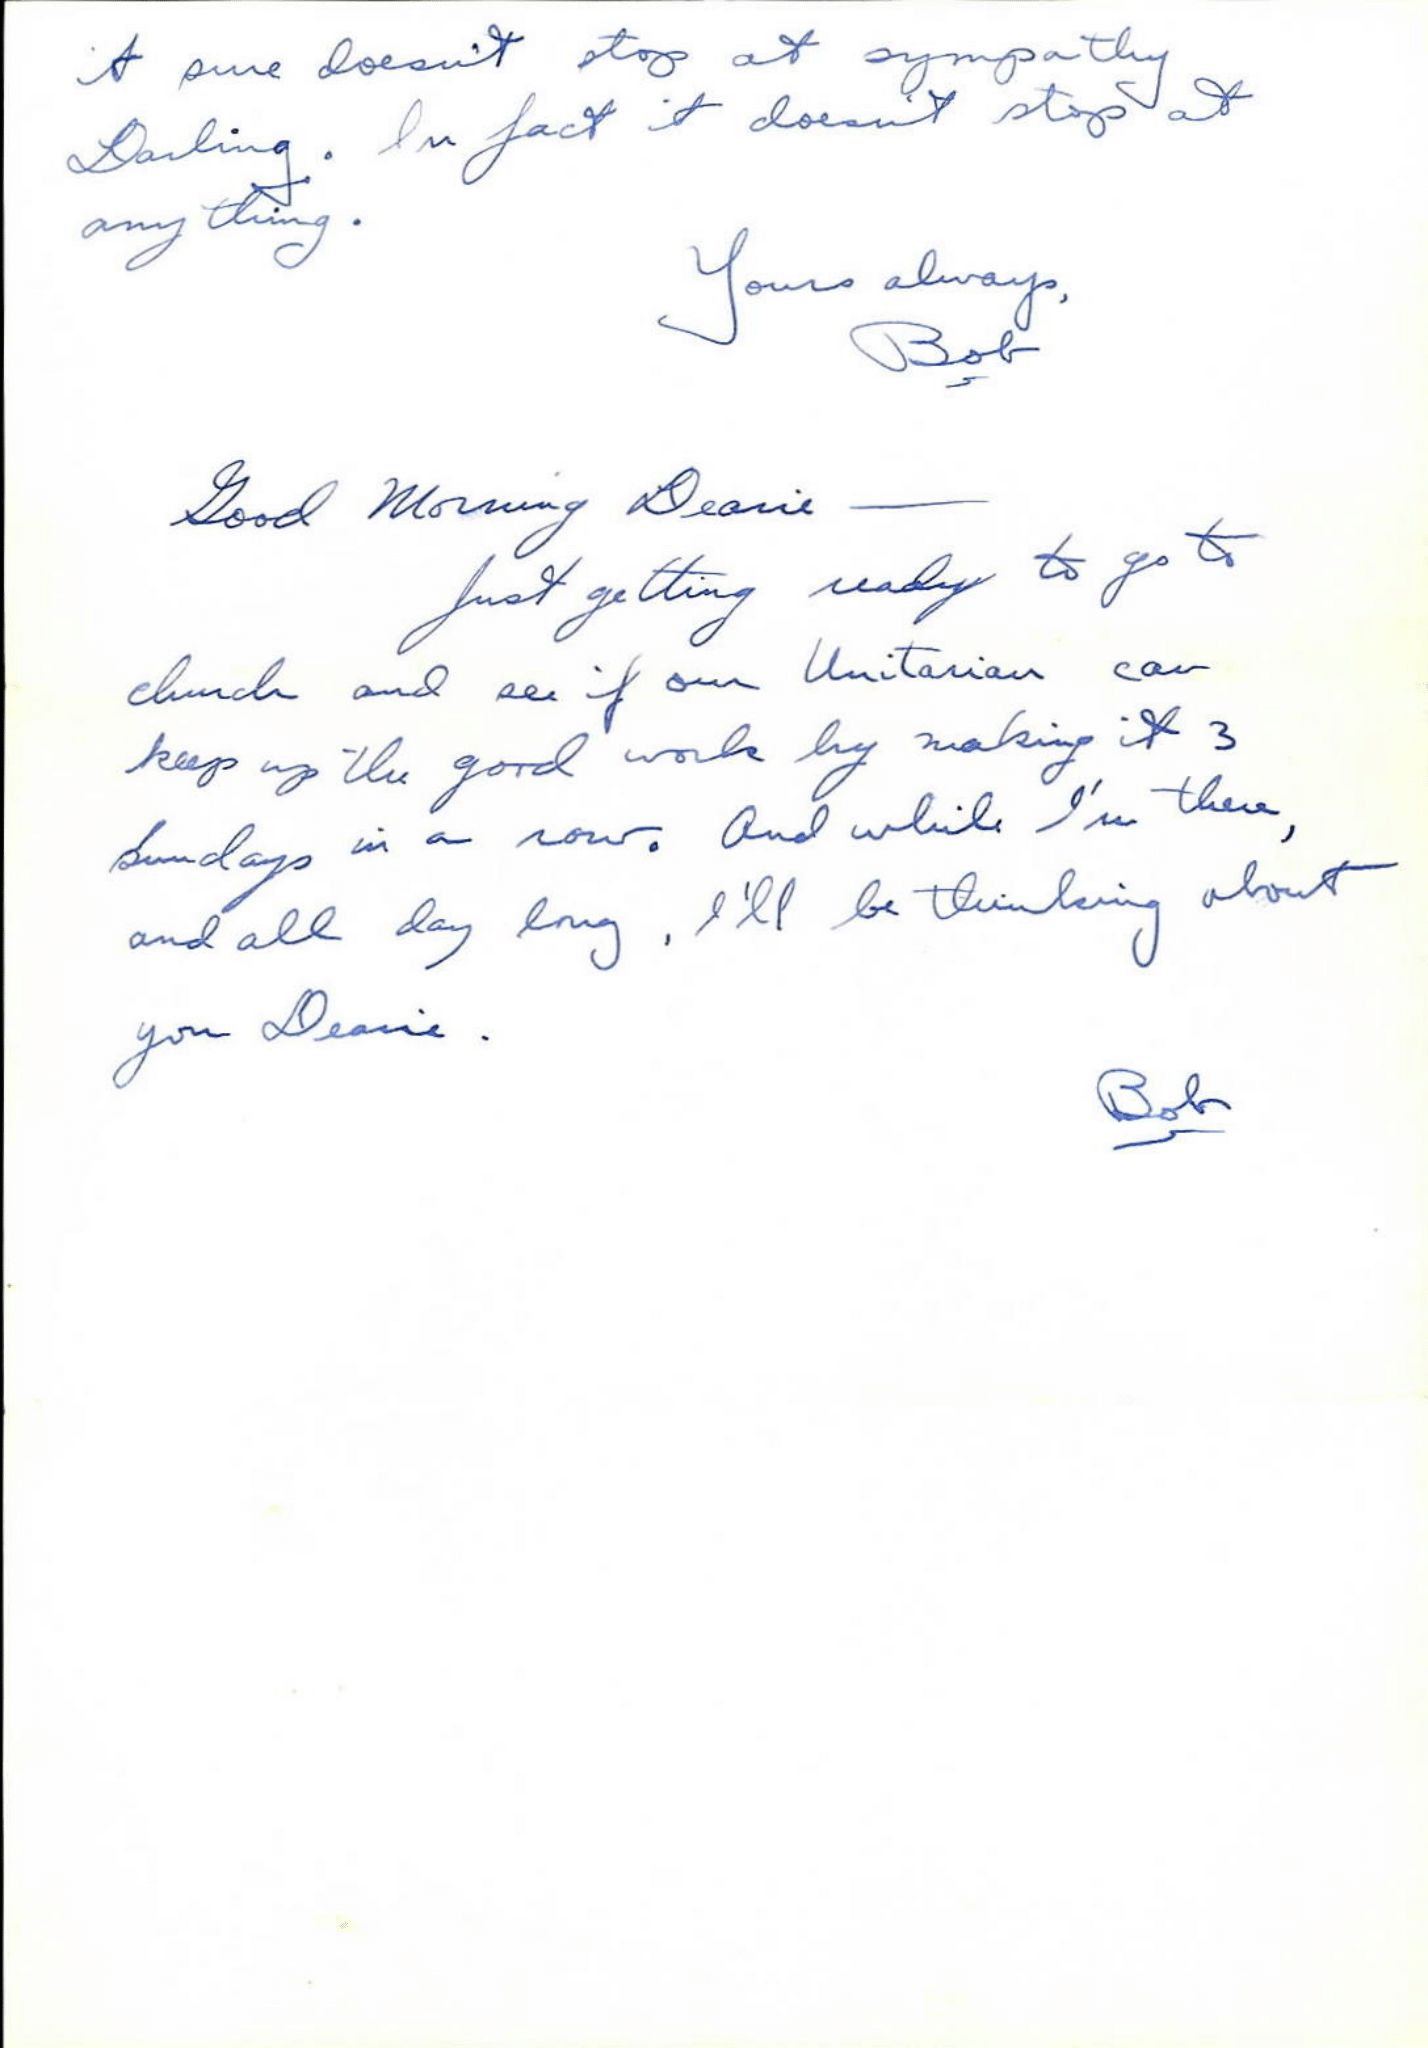 it sure doesn't stop at sympathy
Darling. In fact it doesn't stop at
anything.
Yours always,
Bob
Good Morning Dearie —
Just getting ready to go to
church and see if our Unitarian can
keep up the good work by making it 3
Sundays in a row. And while I'm there,
and all day long, I'll be thinking about
you Dearie.
Bob